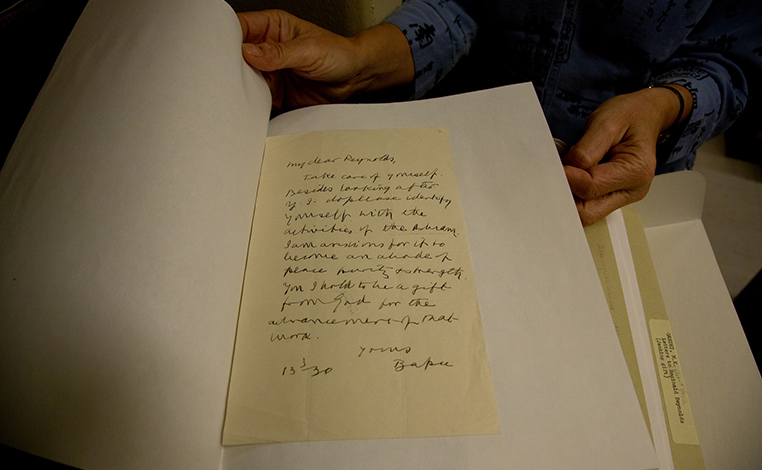 My dear Reynolds,
Take care of yourself.
Besides looking after
Y. I. do please identify
yourself with the
activities of the Ashram.
I am anxious for it to
become an abode of
peace purity & strength.
You I hold to be a gift
from God for the
advancement of that
work.
Yours
13/3/30 Bapu
GANDHI, M.K.
Letters to Reginald Reynolds